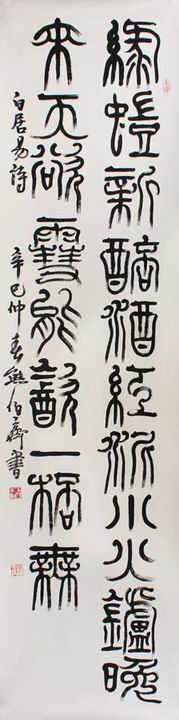 綠螘新醅酒紅泥小火鑪晚
來天欲雪能飲一桮無
白居易詩 辛巳仲春熊伯齊書